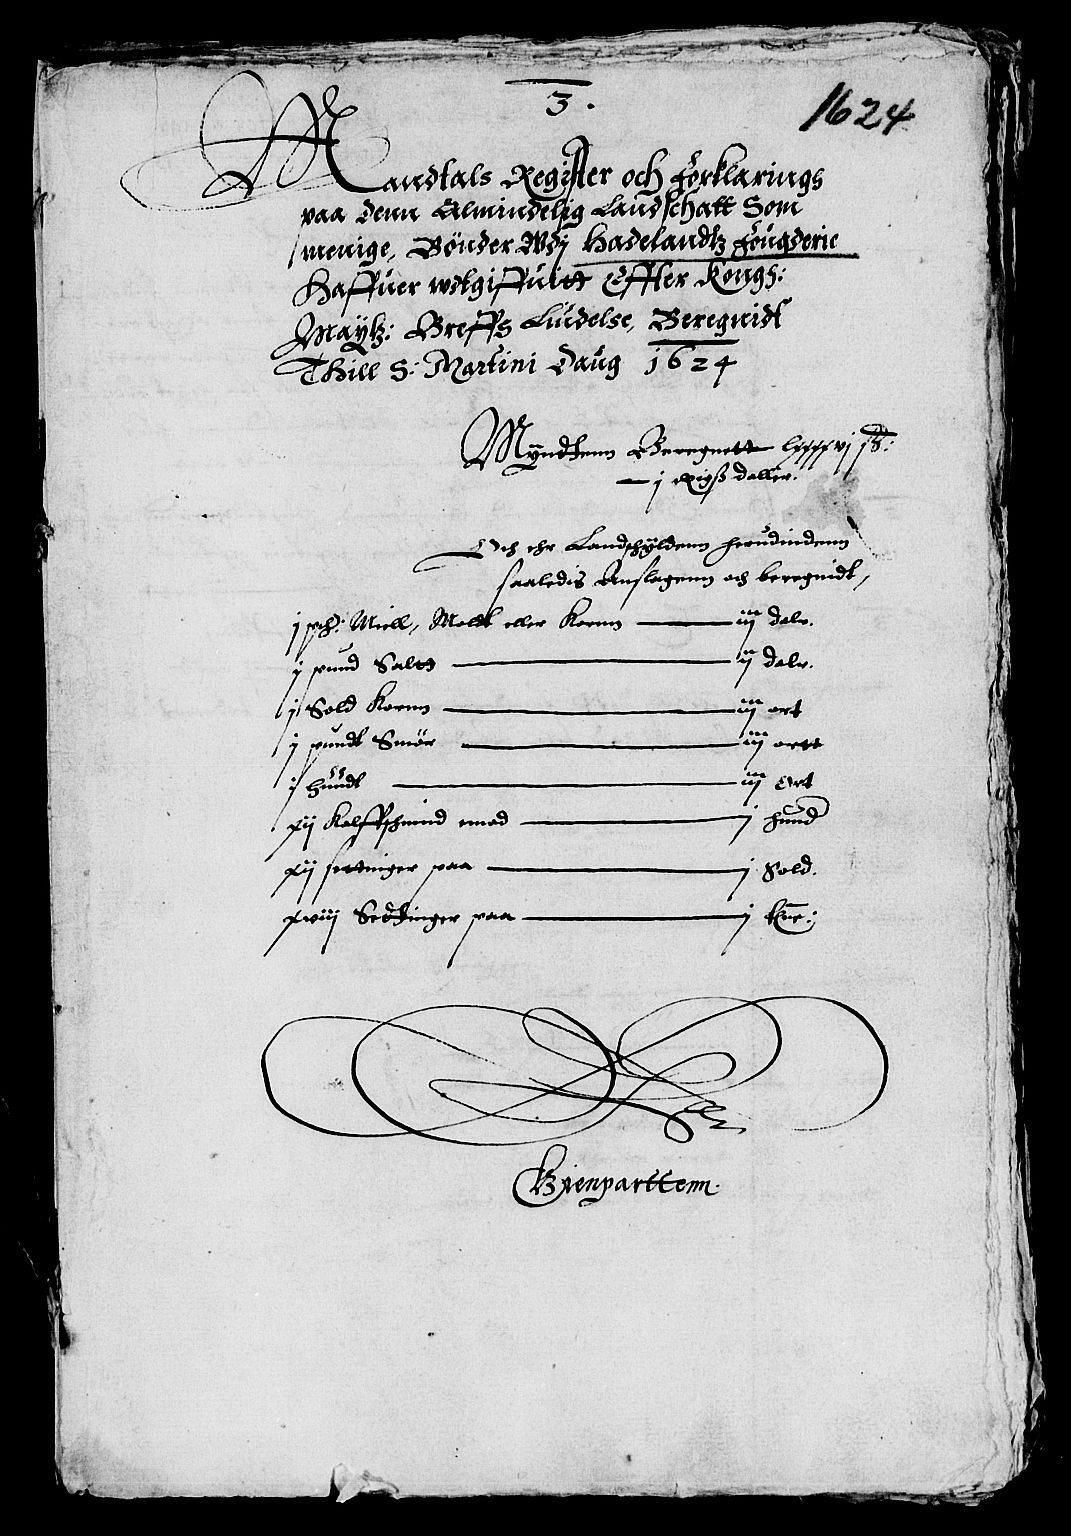 3.
1624
Mandtals Register och forklarings
paa denn Almindelig Landschatt Som
menige, Bønder Wdj Hadelandtz fougderie
Haffuer wdgiffuitt Effter Kongs:
Maytz: Breffs Liudelse, Beregnidt
Thill S: Martini Daug 1624
Myndtenn Beregnett lxxxxvj sk:
j Rigs daller.
Och ehr Landschyldenn herudindenn
saaledis Anslagenn och beregnidt,
j sch: Miell, Maldt eller Kornn iij dalr.
j pund Saltt ij dalr.
j Sold Kornn iij ort
j pundt Smør iij ortt
j hundt iij Ort
xij Kalffschind emod j hund
xij settinger paa j Sold.
xviij Settinger paa j
Brenparttenn.